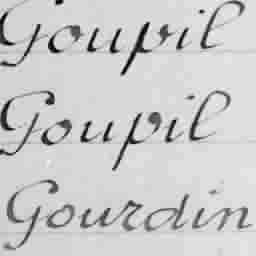 Goupil
Goupil
Gourdin